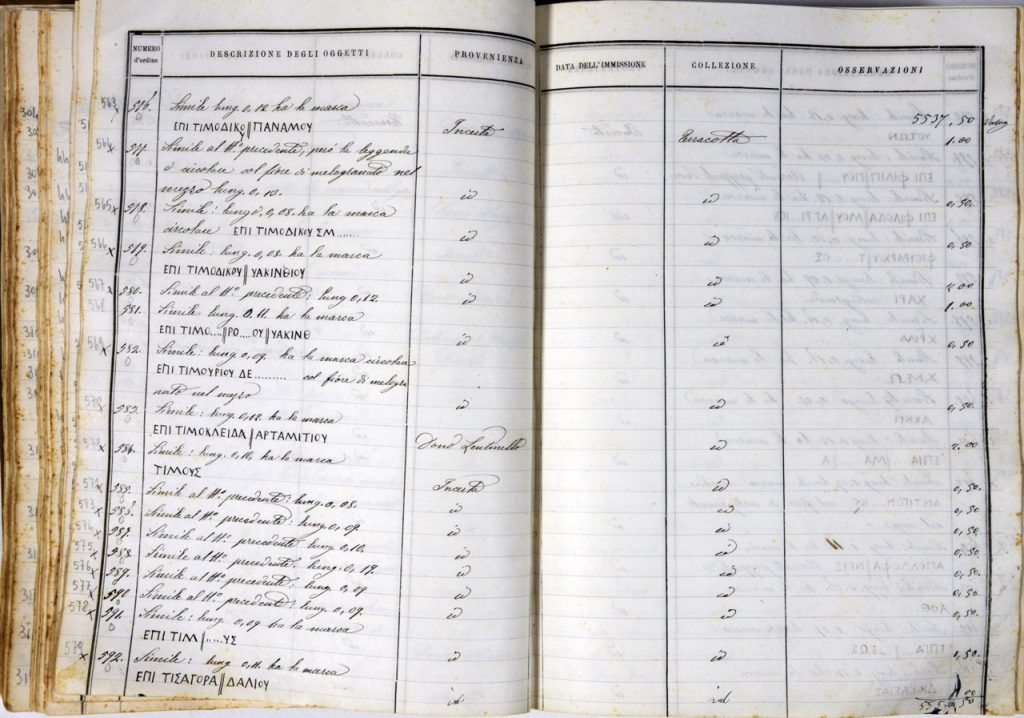 NUMERO d'ordine DESCRIZIONE DEGLI OGGETTI PROVENIENZA DATA DELL'IMMISSIONE COLLEZIONE OSSERVAZIONI
5537,50
563 576. Simile lung. 0,12. ha la marca
ΕΠΙ ΤΙΜΟΔΙΚΟ||ΠΑΝΑΜΟΥ Incerta Terracotta 1.00
564 577. Simile al N.º precedente, però la leggenda
è circolare col fiore di melogranato nel
mezzo lung. 0,10. id id 0,50.
565 578. Simile: lung. 0,08. ha la marca
circolare ΕΠΙ ΤΙΜΟΔΙΚΟΥ ΣΜ....... id id 0,50
566 x 579. Simile: lung. 0,08. ha la marca
ΕΠΙ ΤΙΜΟΔΙΚΟΥ||ΥΑΚΙΝΘΙΟΥ id id 2,00
567 x 580. Simile al N.º precedente: lung. 0,12. id id 1.00
568 581. Simile: lung. 0,11. ha la marca
ΕΠΙ ΤΙΜΟ....||ΡΟ....ΟΥ||ΥΑΚΙΝΘ id id 0,50
569 x 582. Simile: lung. 0,09. ha la marca circolare
ΕΠΙ ΤΙΜΟΥΡΙΟΥ ΔΕ......... col fiore di melogra
nato nel mezzo id id 0,50.
583. Simile: lung. 0,12. ha la marca
ΕΠΙ ΤΙΜΟΚΛΕΙΔΑ||ΑΡΤΑΜΙΤΙΟΥ Dono Lentinello id 2.00
x 584. Simile: lung. 0,11. ha la marca
ΤΙΜΟΥΣ Incerta id 0,50.
Simile al N.º precedente: lung. 0,08. id id 0,50
573 x Simile al N.º precedente: lung. 0,09. id id 0,50.
574 587. Simile al N.º precedente lung. 0,10. id id 0,50.
575 588. Simile al N.º precedente: lung. 0,12. id id 0,50.
576 x 589. Simile al N.º precedente: lung. 0,09 id id 0,50.
577 x 590. Simile al N.º precedente: lung. 0,09. id id 0,50
578 x 591. Simile: lung. 0,09 ha la marca
ΕΠΙ ΤΙΜ||.....ΥΣ id id 0,50.
579 x 592. Simile: lung. 0,11. ha la marca
ΕΠΙ ΤΙΣΑΓΟΡΑ||ΔΑΛΙΟΥ id id